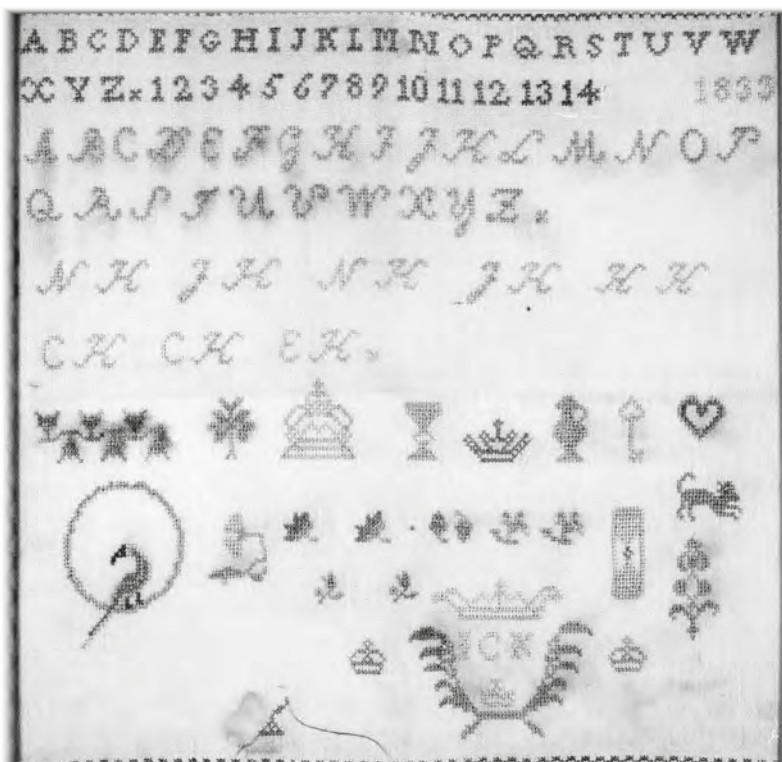 A B C D E F G H I J K L M N O P Q R S T U V W
X Y Z × 1 2 3 4 5 6 7 8 9 10 11 12 13 14 × 1833
A B C D E F G H I J K L M N O P
Q R S T U V W X Y Z ×
N K J K N K J K K K
C K C K E K ×
I C K